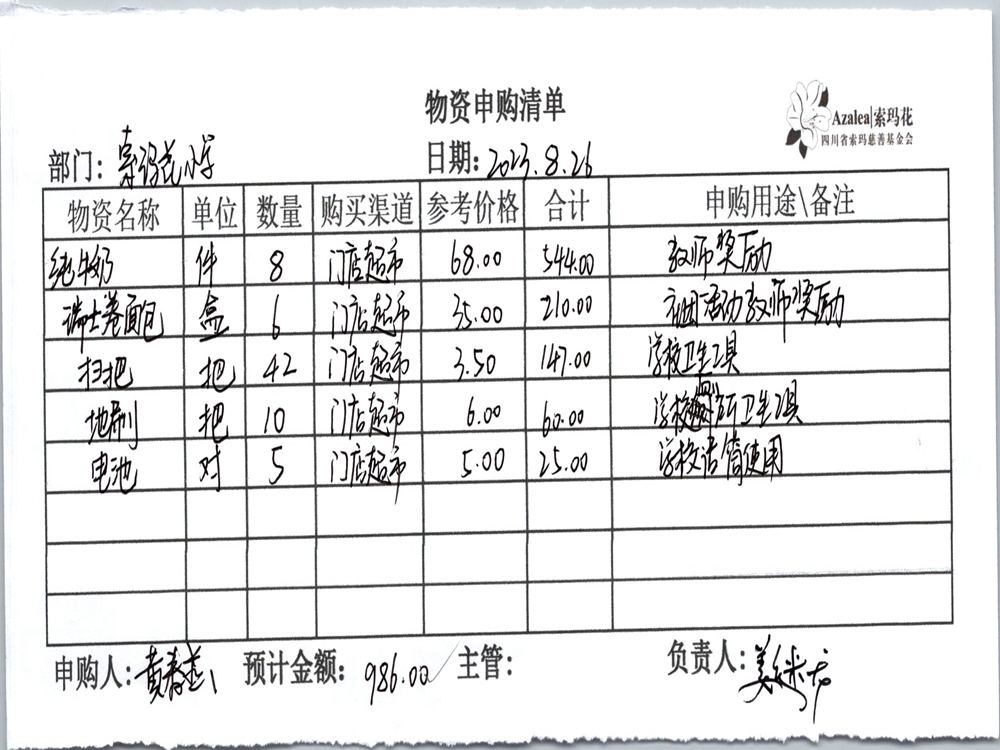 物资申购清单
Azalea|索玛花
四川省索玛慈善基金会
部门：索玛花小学 日期：2023.8.26
物资名称 单位 数量 购买渠道 参考价格 合计 申购用途\备注
纯牛奶 件 8 门店超市 68.00 544.00 教师奖励
瑞士卷面包 盒 6 门店超市 35.00 210.00 社团活动教师奖励
扫把 把 42 门店超市 3.50 147.00 学校卫生工具
地刷 把 10 门店超市 6.00 60.00 学校厕所卫生工具
电池 对 5 门店超市 5.00 25.00 学校话筒使用
申购人：黄春燕 预计金额：986.00 主管： 负责人：